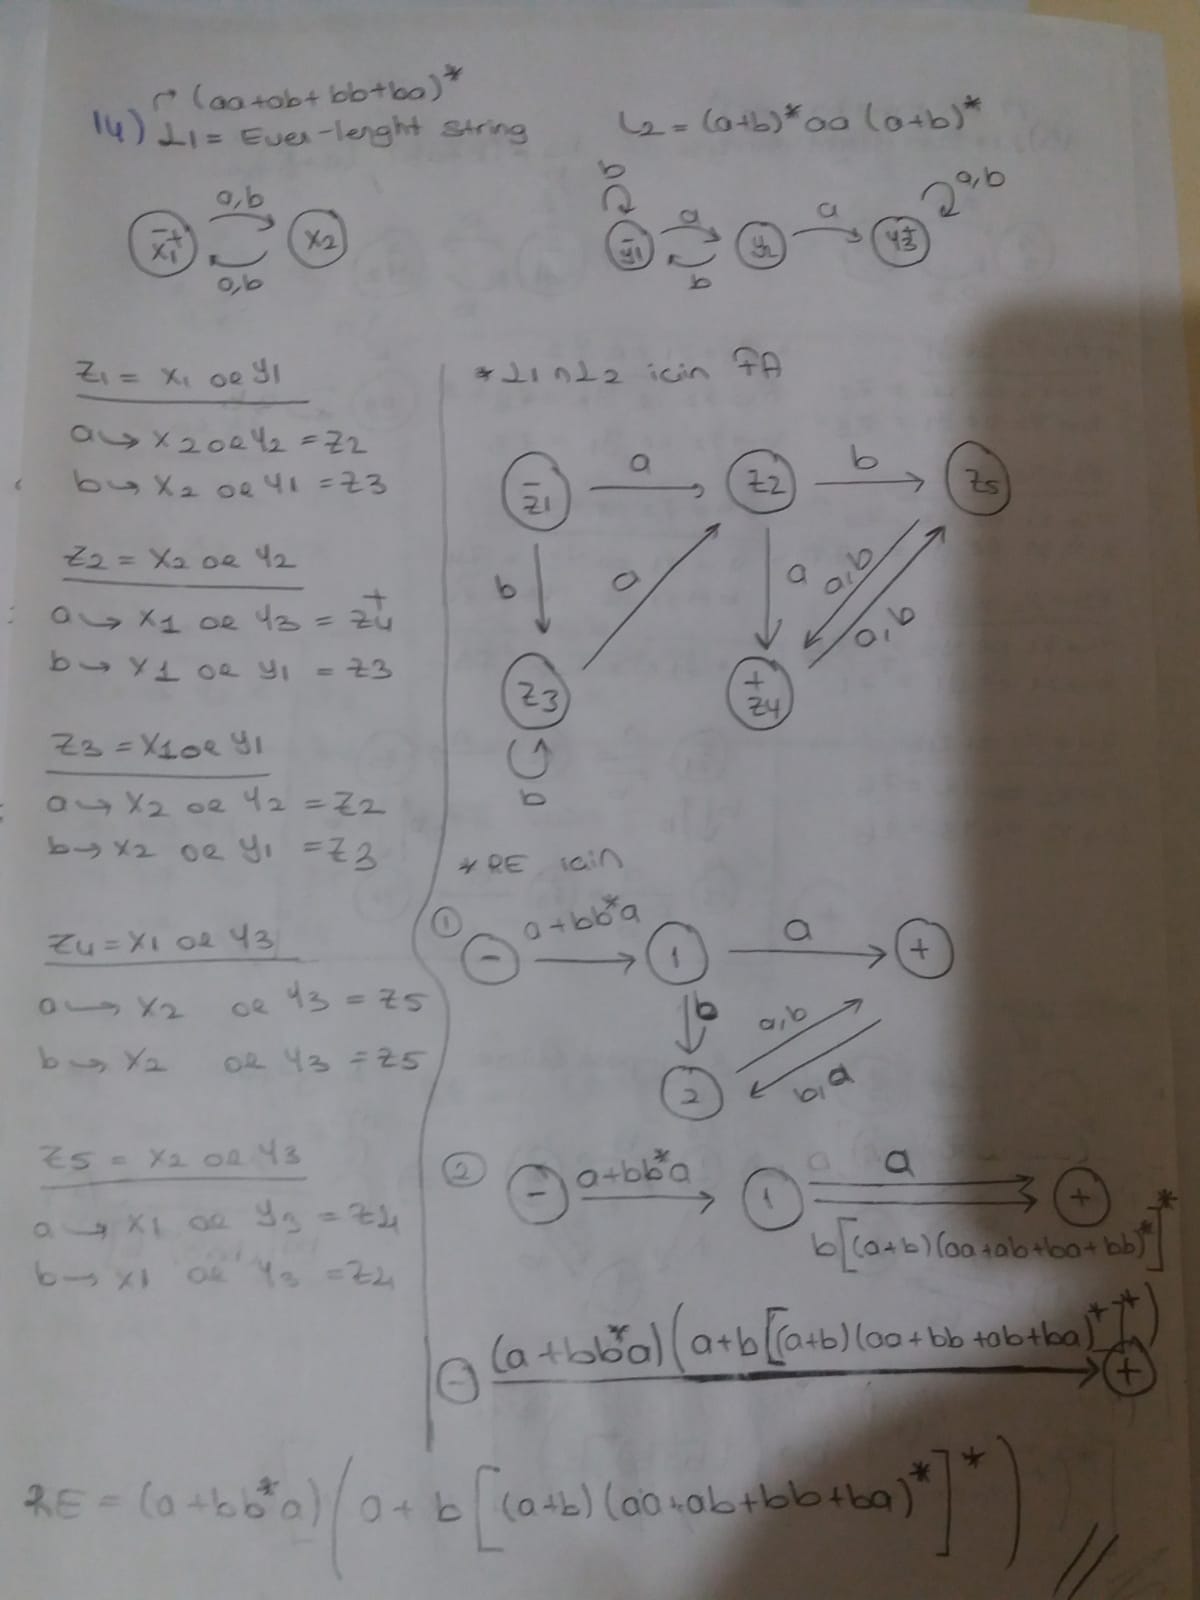 → (aa+ab+bb+ba)*
14) L1 = Even-lenght string
L2 = (a+b)*aa(a+b)*
a,b
-x1+ x2
a,b
b a a a,b
-y1 y2 y3+
b
Z1 = x1 or y1
a → x2 or y2 = Z2
b → x2 or y1 = Z3
Z2 = x2 or y2
a → x1 or y3 = Z4+
b → x1 or y1 = Z3
Z3 = x1 or y1
a → x2 or y2 = Z2
b → x2 or y1 = Z3
Z4 = x1 or y3
a → x2 or y3 = Z5
b → x2 or y3 = Z5
Z5 = x2 or y3
a → x1 or y3 = Z4
b → x1 or y3 = Z4
* L1∩L2 icin FA
a b
-Z1 Z2 Z5
b a a a,b a,b
Z3 +Z4
b
* RE icin
① a+bb*a a
- 1 +
b a,b b,a
2
② a+bb*a a
- 1 +
b[(a+b)(aa+ab+ba+bb)*]*
(a+bb*a)(a+b[(a+b)(aa+bb+ab+ba)*]*)
- +
RE = (a+bb*a)(a+b[(a+b)(aa+ab+bb+ba)*]*) //